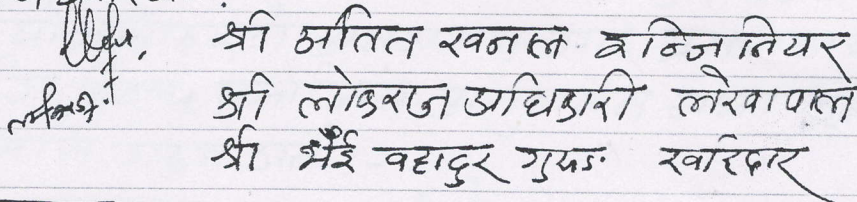 श्री अतित खनाल इन्जिनियर
श्री लोकराज अधिकारी लेखापाल
श्री भैई बहादुर गुरुङ खरिदार